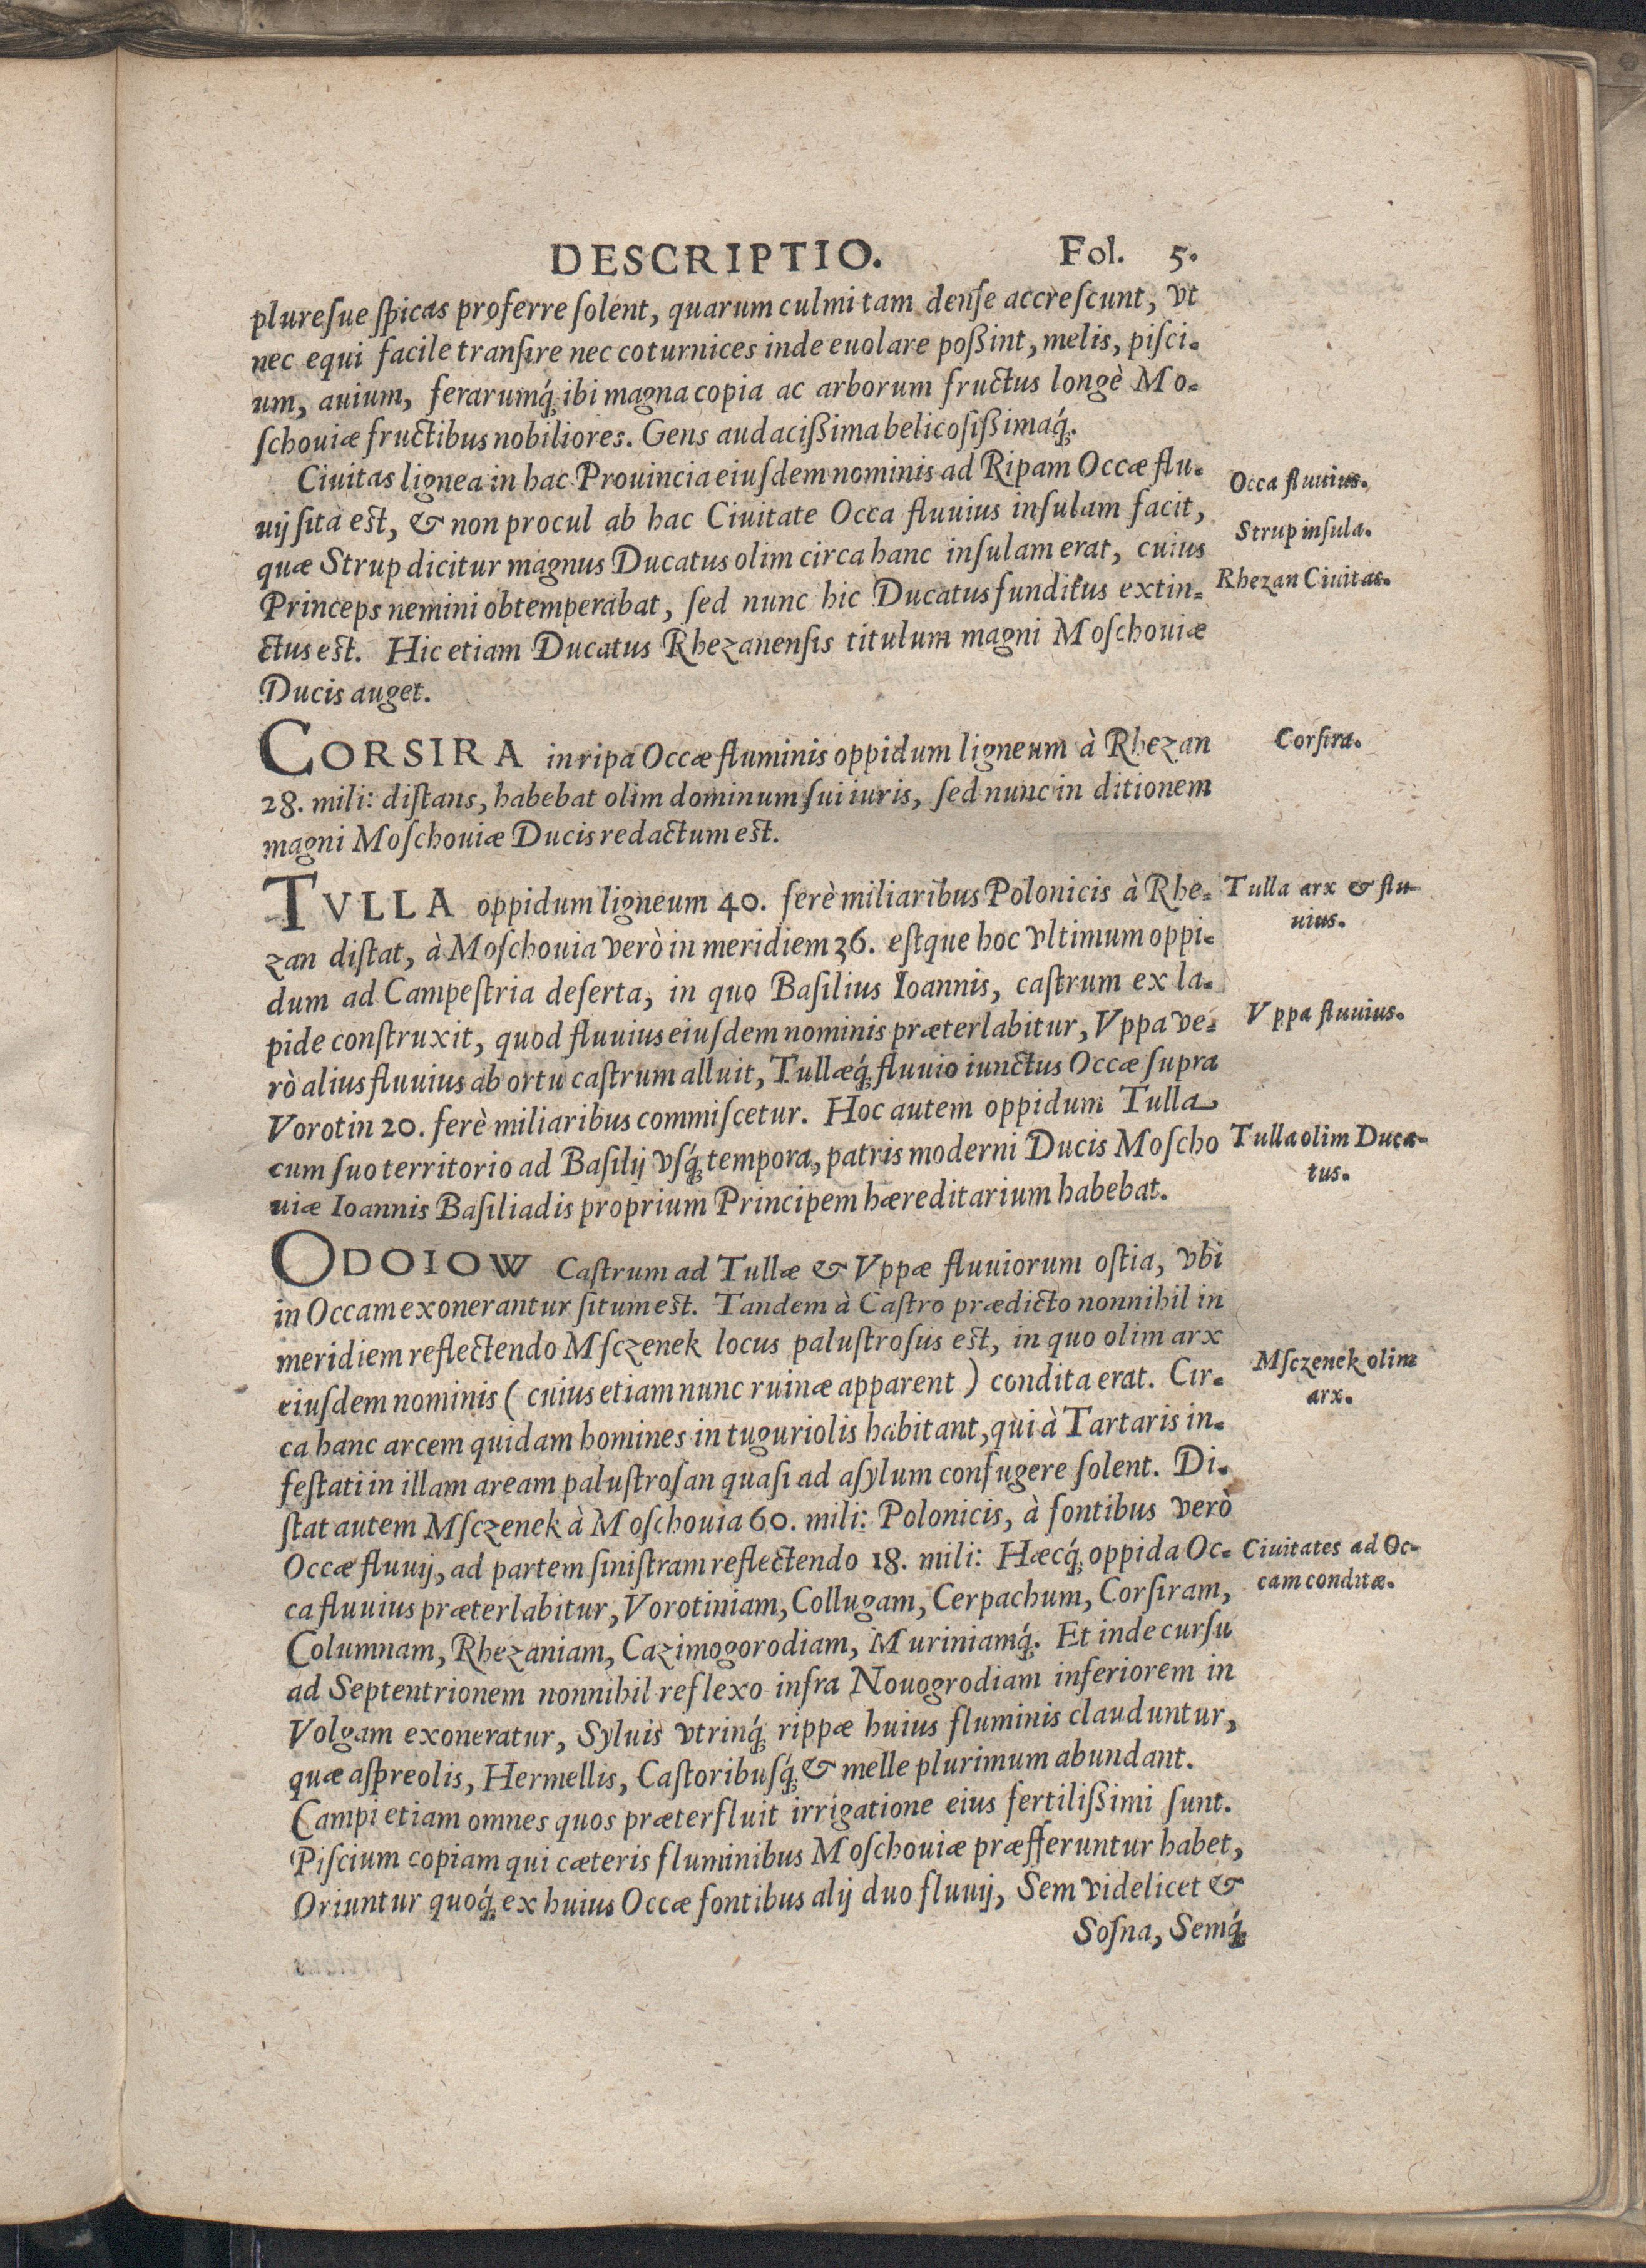 DESCRIPTIO. Fol. 5.
pluresue spicas proferre solent, quarum culmi tam dense accrescunt, vt
nec equi facile transire nec coturnices inde euolare poßint, melis, pisci-
um, auium, ferarumq́; ibi magna copia ac arborum fructus longè Mo-
schouiæ fructibus nobiliores. Gens audacißima belicosißimaq́;.
Ciuitas lignea in hac Prouincia eiusdem nominis ad Ripam Occæ flu-
uij sita est, & non procul ab hac Ciuitate Occa fluuius insulam facit,
quæ Strup dicitur magnus Ducatus olim circa hanc insulam erat, cuius
Princeps nemini obtemperabat, sed nunc hic Ducatus funditus extin-
ctus est. Hic etiam Ducatus Rhezanensis titulum magni Moschouiæ
Ducis auget.
Occa fluuius.
Strup insula.
Rhezan Ciuitas.
CORSIRA in ripa Occæ fluminis oppidum ligneum à Rhezan
28. mili: distans, habebat olim dominum sui iuris, sed nunc in ditionem
magni Moschouiæ Ducis redactum est.
Corsira.
TVLLA oppidum ligneum 40. ferè miliaribus Polonicis à Rhe-
zan distat, à Moschouia verò in meridiem 36. estque hoc vltimum oppi-
dum ad Campestria deserta, in quo Basilius Ioannis, castrum ex la-
pide construxit, quod fluuius eiusdem nominis præterlabitur, Vppa ve-
rò alius fluuius ab ortu castrum alluit, Tullæq́; fluuio iunctus Occæ supra
Vorotin 20. ferè miliaribus commiscetur. Hoc autem oppidum Tulla
cum suo territorio ad Basilij vsq́; tempora, patris moderni Ducis Moscho
uiæ Ioannis Basiliadis proprium Principem hæreditarium habebat.
Tulla arx & flu-
uius.
Vppa fluuius.
Tulla olim Duca-
tus.
ODOIOW Castrum ad Tullæ & Vppæ fluuiorum ostia, vbi
in Occam exonerantur situm est. Tandem à Castro prædicto nonnihil in
meridiem reflectendo Msczenek locus palustrosus est, in quo olim arx
eiusdem nominis ( cuius etiam nunc ruinæ apparent ) condita erat. Cir-
ca hanc arcem quidam homines in tuguriolis habitant, qui à Tartaris in-
festati in illam aream palustrosan quasi ad asylum confugere solent. Di-
stat autem Msczenek à Moschouia 60. mili: Polonicis, à fontibus verò
Occæ fluuij, ad partem sinistram reflectendo 18. mili: Hæcq́; oppida Oc-
ca fluuius præterlabitur, Vorotiniam, Collugam, Cerpachum, Corsiram,
Columnam, Rhezaniam, Cazimogorodiam, Muriniamq́;. Et inde cursu
ad Septentrionem nonnihil reflexo infra Nouogrodiam inferiorem in
Volgam exoneratur, Syluis vtrinq́; rippæ huius fluminis clauduntur,
quæ aspreolis, Hermellis, Castoribusq́; & melle plurimum abundant.
Campi etiam omnes quos præterfluit irrigatione eius fertilißimi sunt.
Piscium copiam qui cæteris fluminibus Moschouiæ præfferuntur habet,
Oriuntur quoq́; ex huius Occæ fontibus alij duo fluuij, Sem videlicet &
Sosna, Semq́;
Msczenek olim
arx.
Ciuitates ad Oc-
cam conditæ.